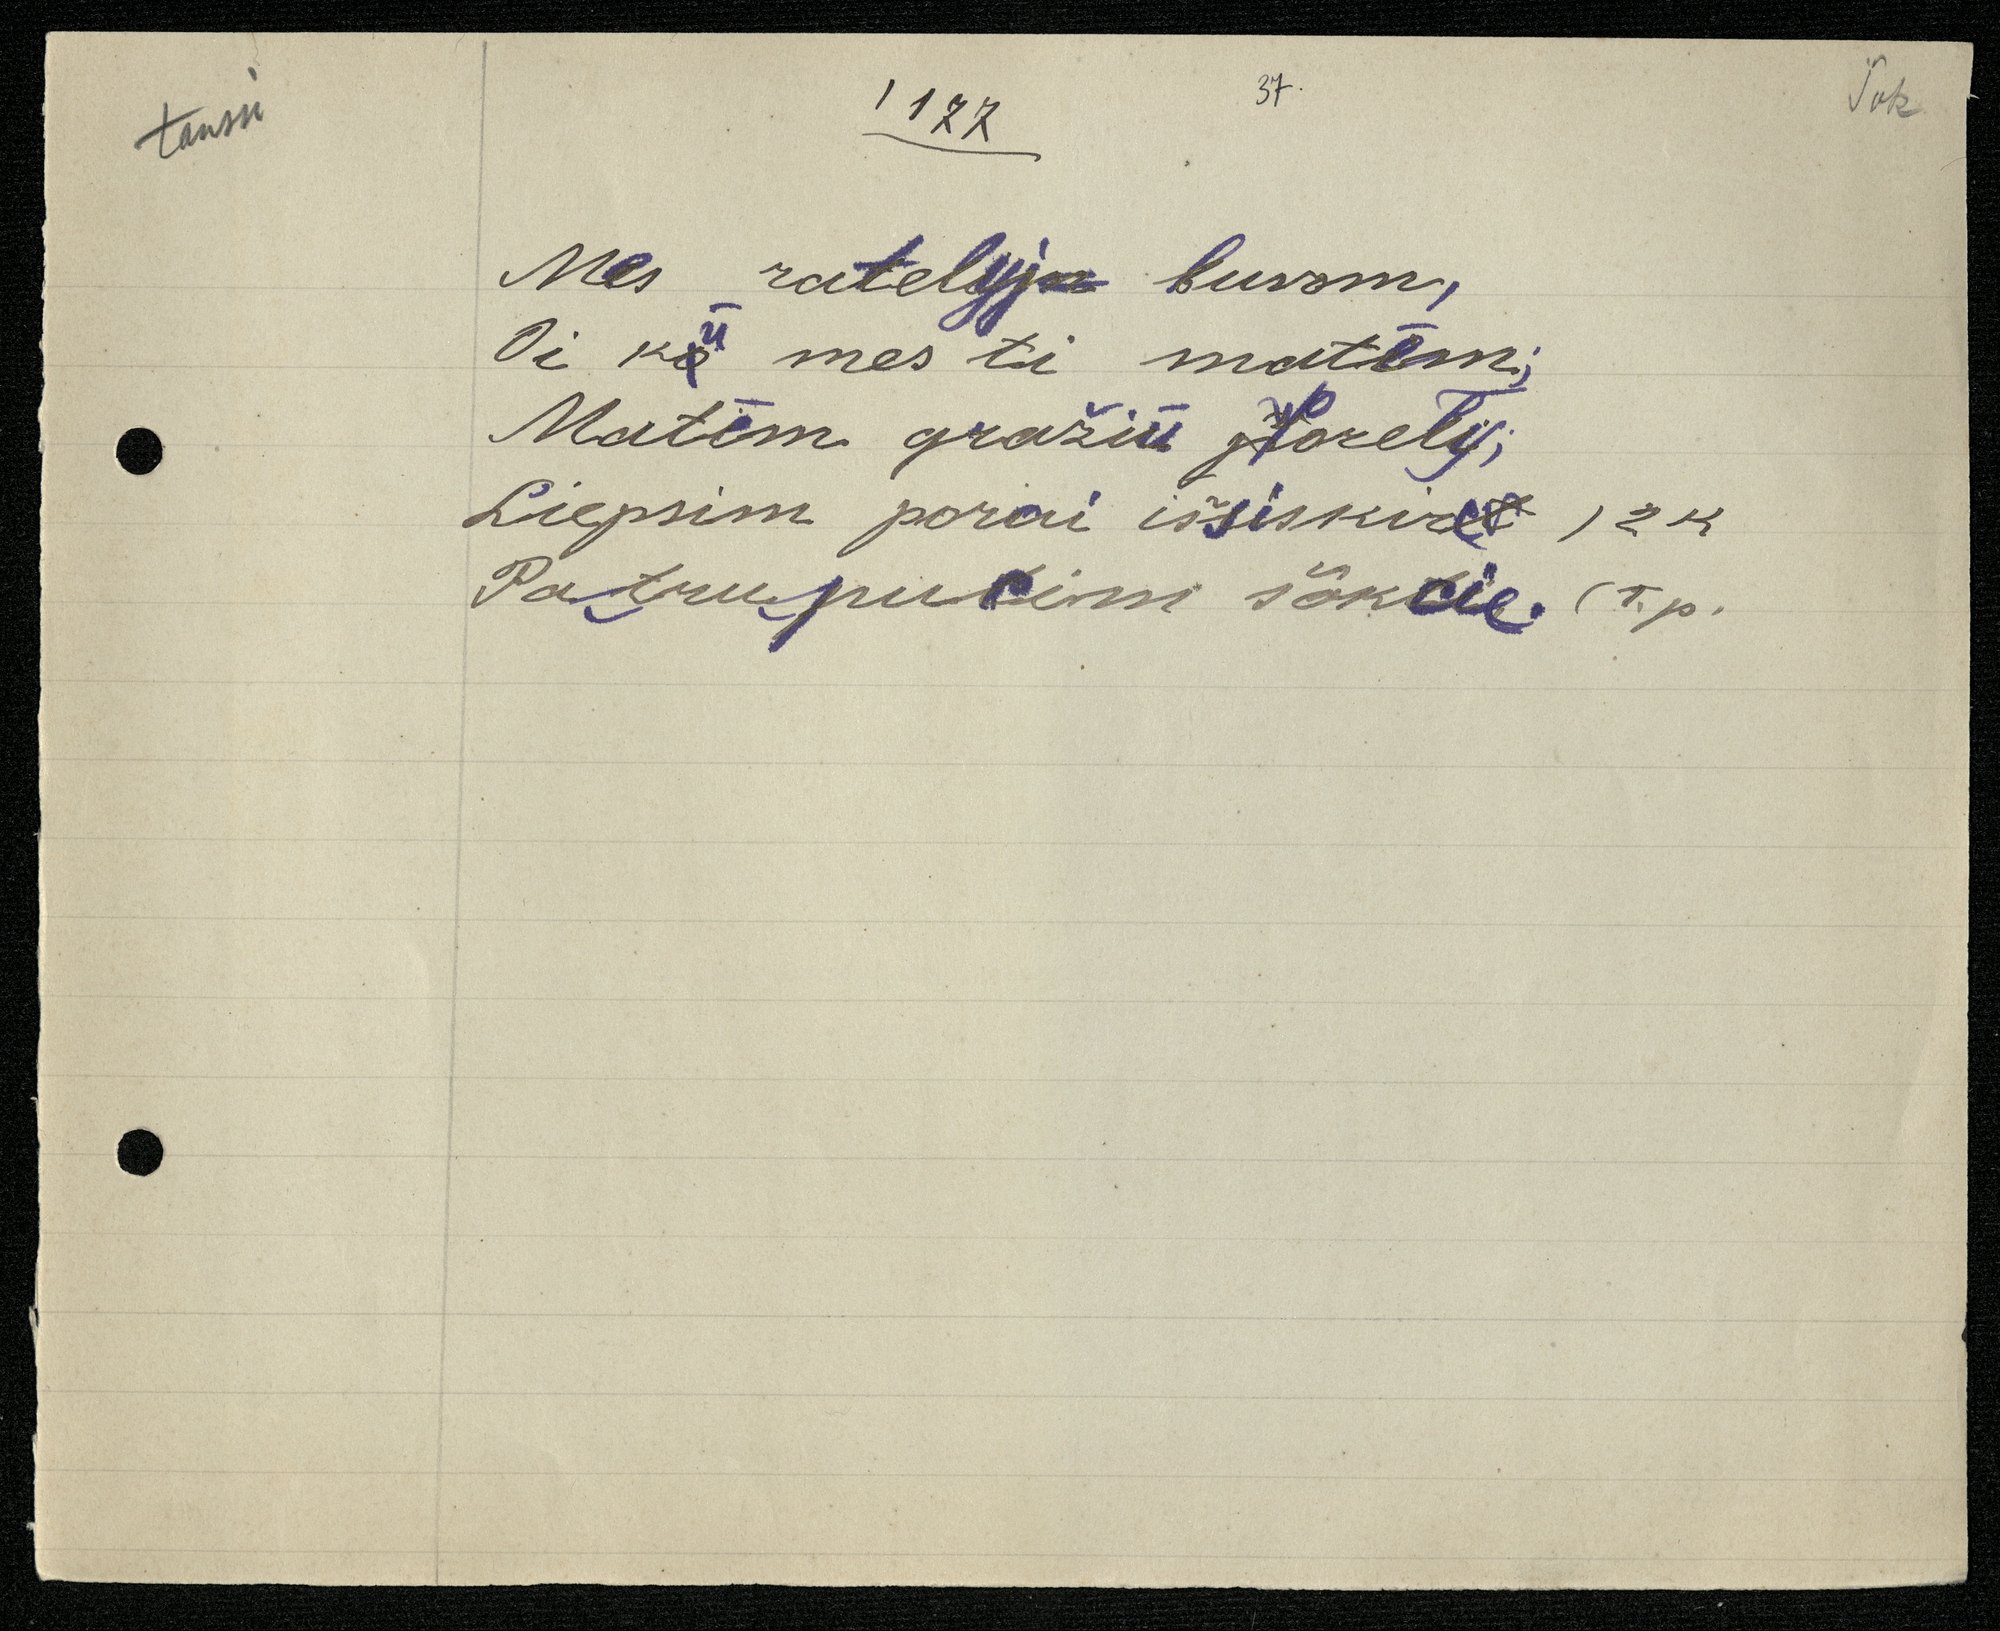 tanssi
1177
37.
Šok
Mes ratelyj buvom,
Oi kū mes ti matēm;
Matēm gražiū porely;
Liepsim porai išsiskirt ) 2 k
Patrupučim šokcie. ( T. p.